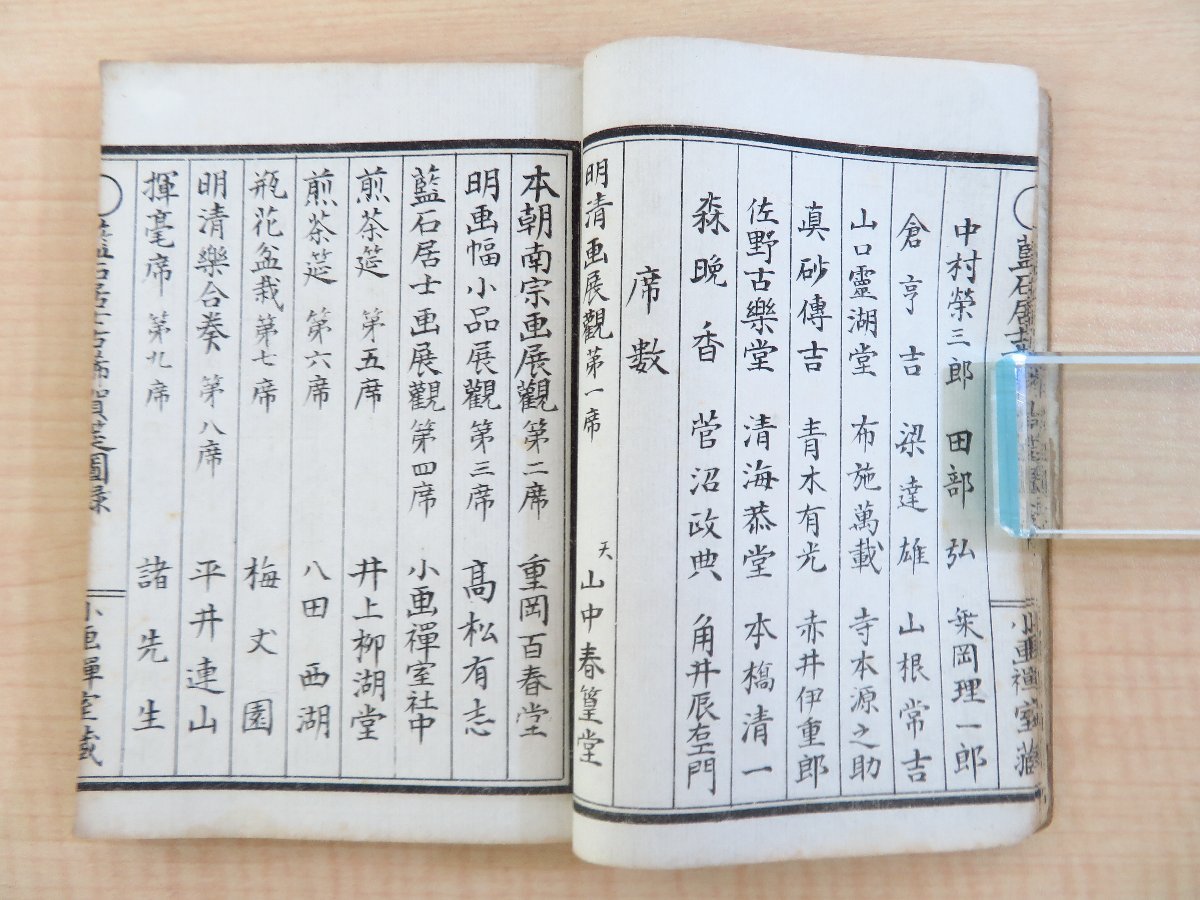 中村榮三郎 田部弘 乗岡理一郎
倉亨吉 梁達雄 山根常吉
山口靈湖堂 布施萬載 寺本源之助
眞砂傳吉 青木有光 赤井伊重郎
佐野古樂堂 清海恭堂 本橋清一
森晩香 菅沼政典 角井辰右エ門
席数
明清画展觀第一席 天 山中春篁堂
本朝南宗画展觀第二席 重岡百春堂
明画幅小品展觀第三席 高松有志
藍石居士画展觀第四席 小画禪室社中
煎茶莚 第五席 井上柳湖堂
煎茶莚 第六席 八田西湖
瓶花盆栽第七席 梅丈園
明清樂合奏 第八席 平井連山
揮毫席 第九席 諸先生
藍石居士古稀賀莚圖錄 小画禪室藏